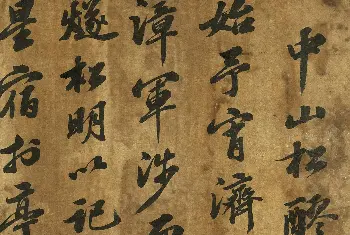 中山松醪
始予宵濟
漳軍涉而
燧松明以記
星宿扵亭